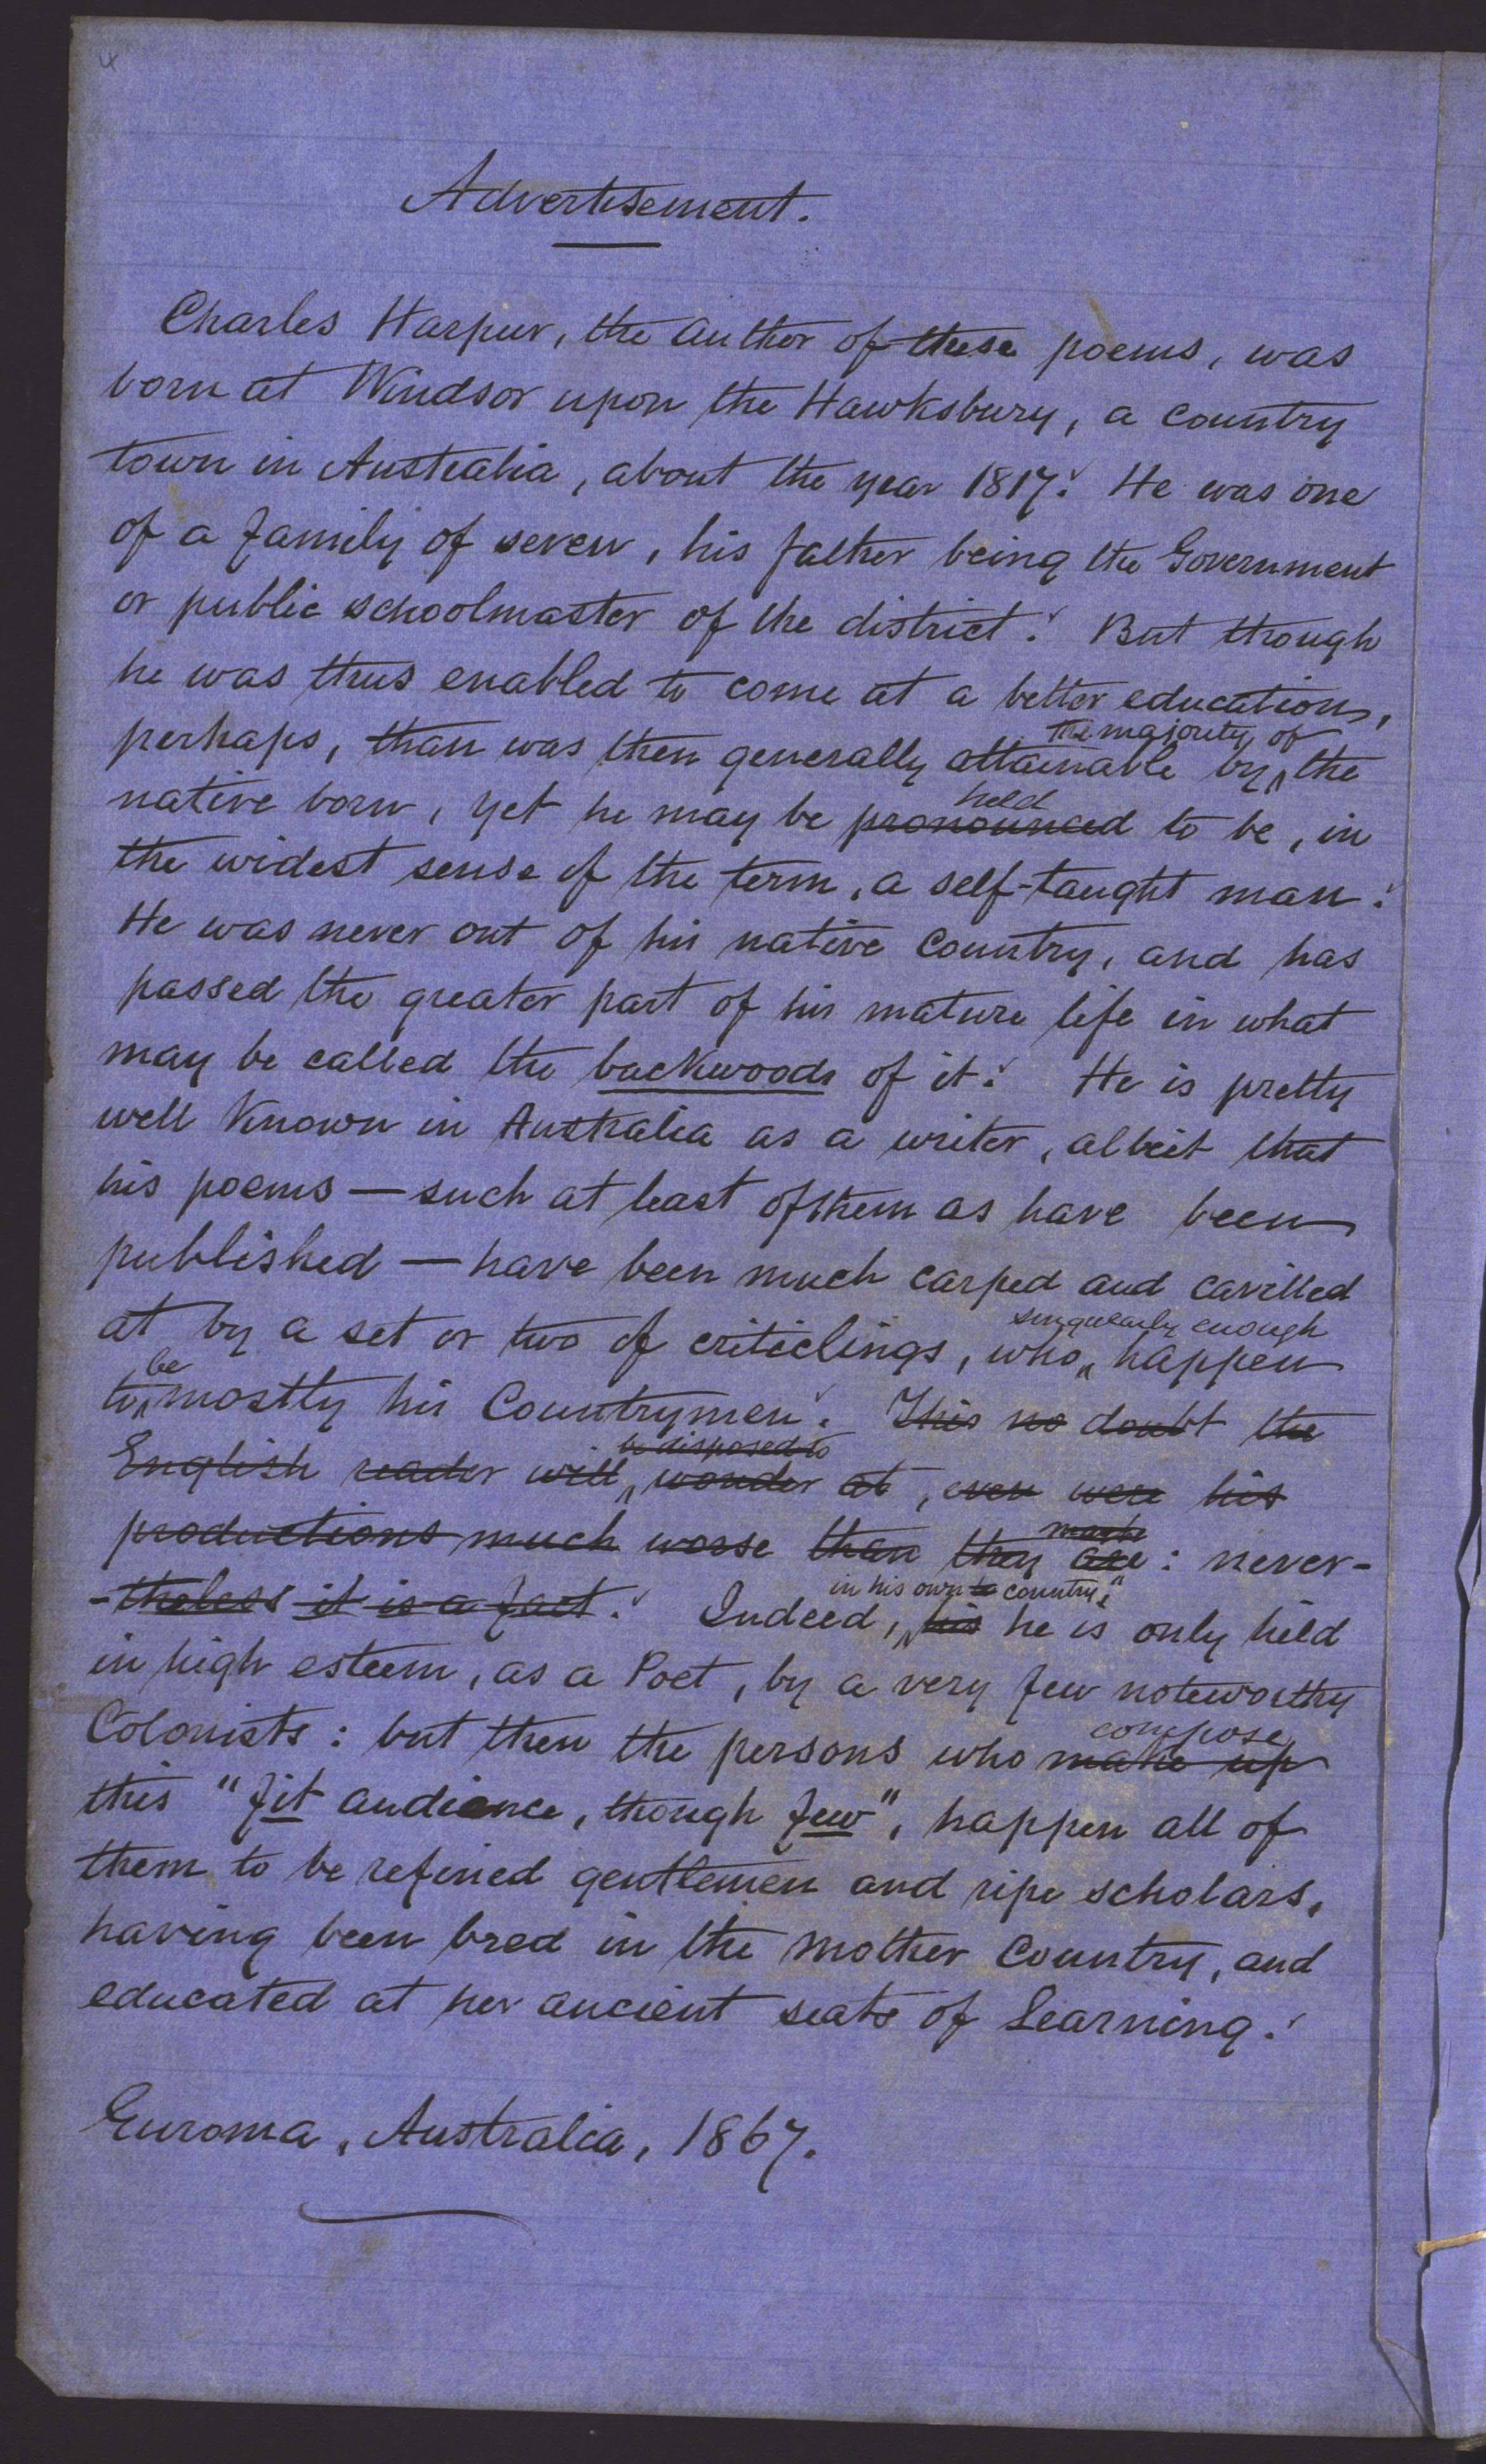 4
Advertisement.
Charles Harpur, the author of these poems, was
born at Windsor upon the Hawksbury, a country
town in Australia, about the year 1817. He was one
of a family of seven, his father being the Government
or public schoolmaster of the district. But though
he was thus enabled to come at a better education,
the majority of
perhaps, than was then generally attainable by the
held
native born, yet he may be pronounced to be, in
the widest sense of the term, a self-taught man.
He was never out of his native country, and has
passed the greater part of his mature life in what
may be called the backwoods of it. He is pretty
well known in Australia as a writer, albeit that
his poems — such at least of them as have been
published — have been much carped and cavilled
singularly enough
at by a set or two of criticlings, who happen
be
to mostly his Countrymen. This no doubt the
be disposed to
English reader will wonder at, even were his
productions much worse than they are : never-
-theless it is a fact. Indeed, his he is only held
in his own country,
in high esteem, as a Poet, by a very few noteworthy
compose
Colonists : but then the persons who make up
this "fit audience, though few", happen all of
them to be refined gentlemen and ripe scholars,
having been bred in the mother Country, and
educated at her ancient seats of Learning.
Euroma, Australia, 1867.